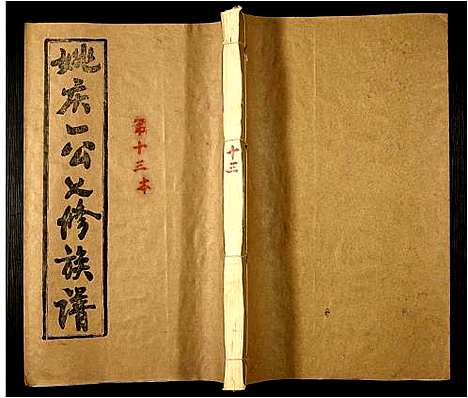 姚庆一公七修族谱
第十三本
十三